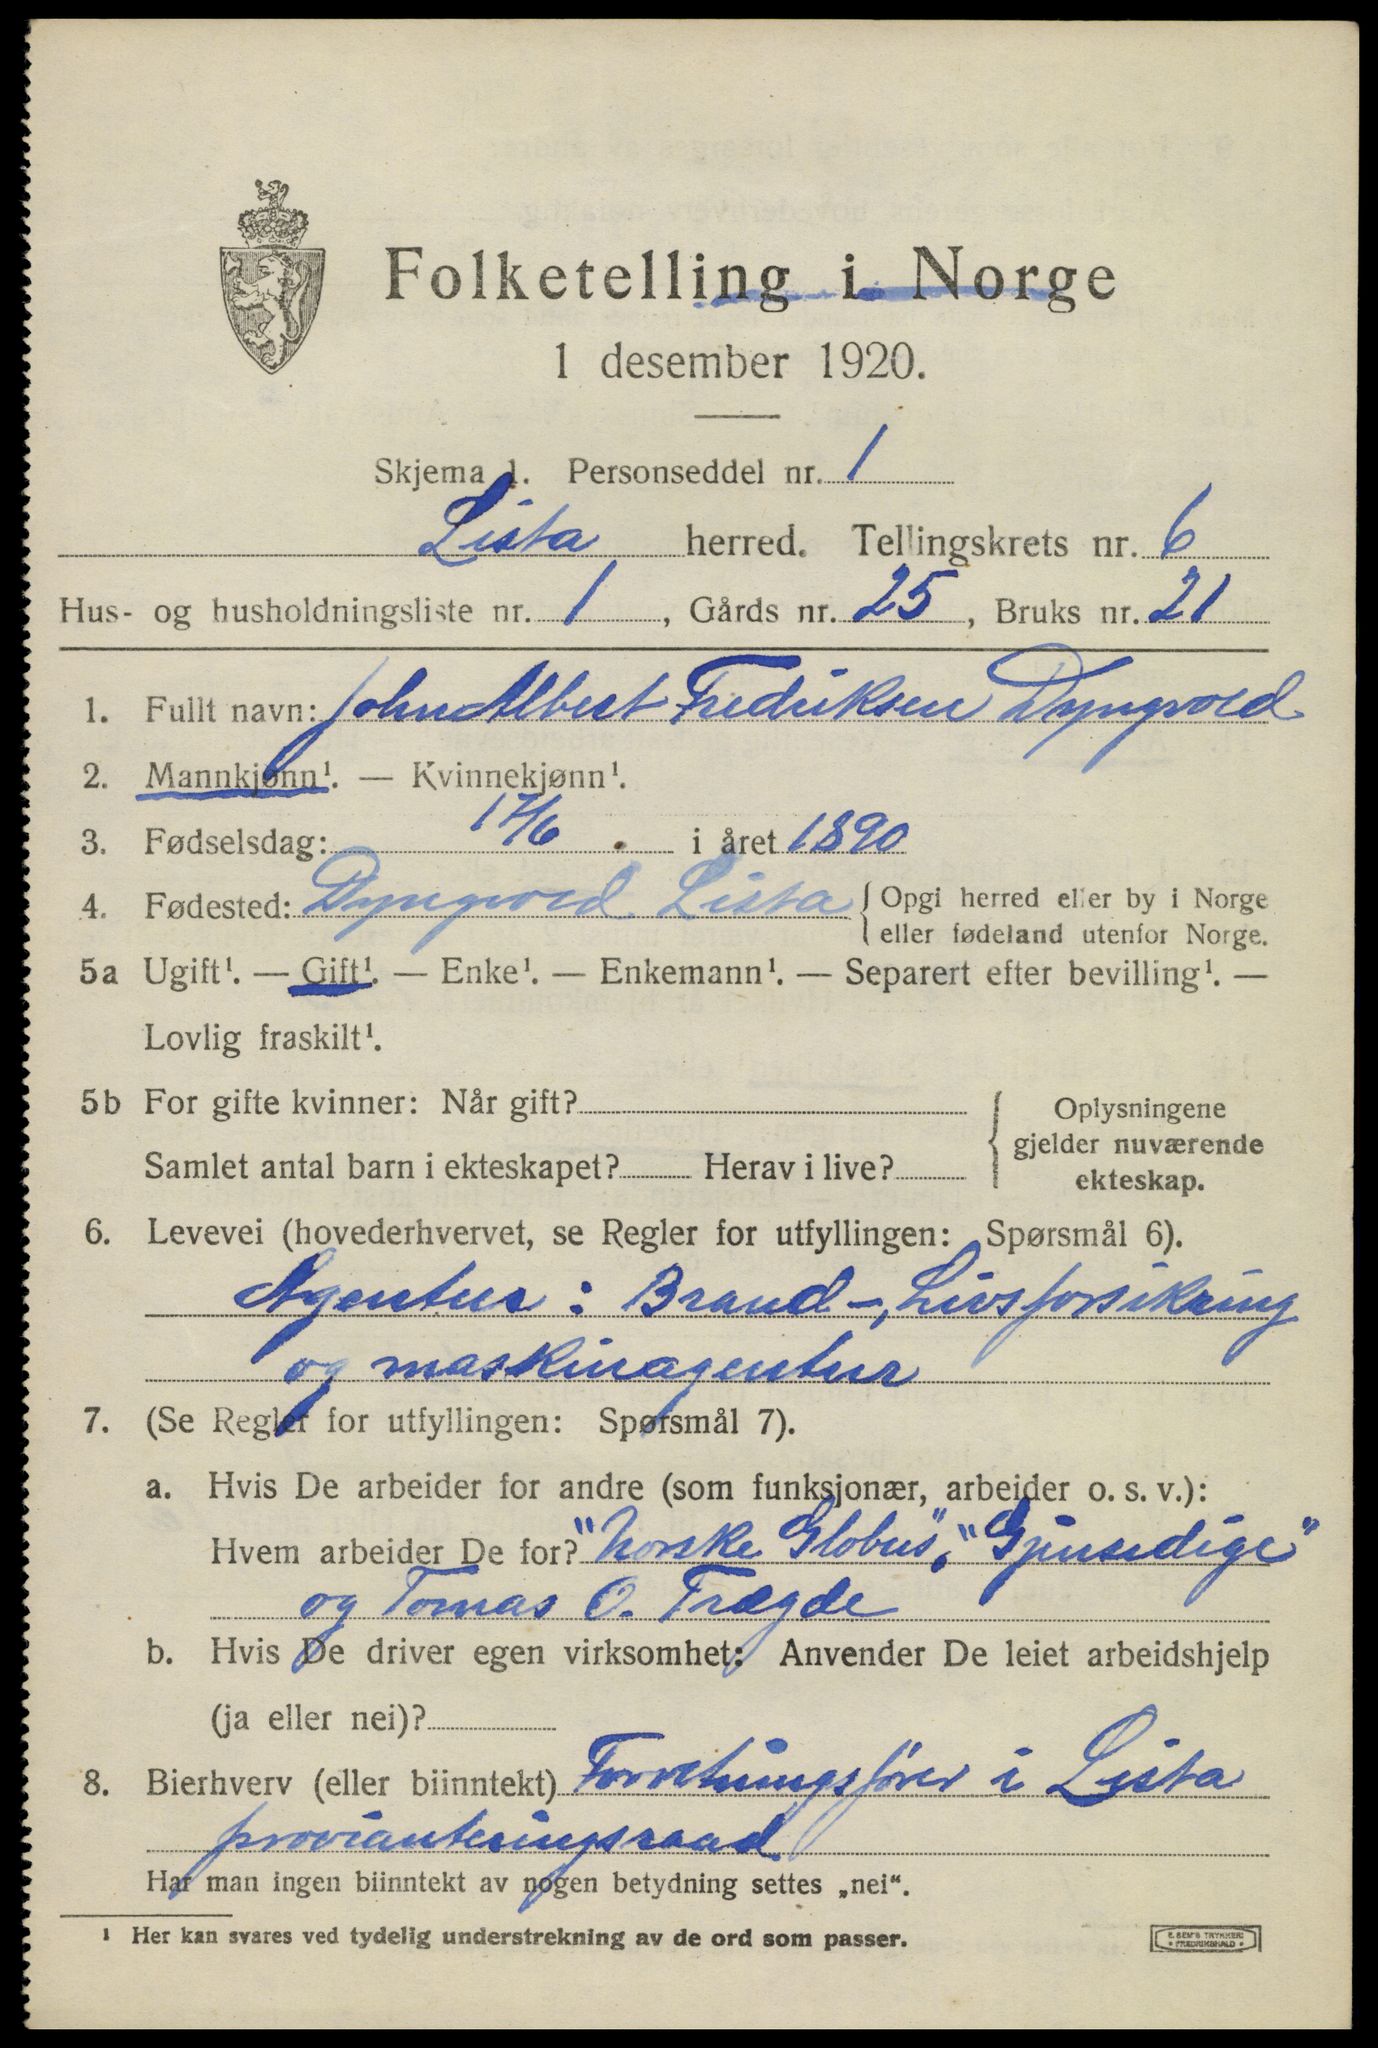 Folketelling i Norge
1 desember 1920.
Skjema 1. Personseddel nr. 1
Lista herred. Tellingskrets nr. 6
Hus- og husholdningsliste nr. 1, Gårds nr. 25, Bruks nr. 21
1. Fullt navn: John Albert Fredriksen Dyngvold
2. Mannkjønn¹. — Kvinnekjønn¹.
3. Fødselsdag: 17/6 . i året 1890
4. Fødested: Dyngvold Lista { Opgi herred eller by i Norge
eller fødeland utenfor Norge.
5a Ugift¹. — Gift¹. — Enke¹. — Enkemann¹. — Separert efter bevilling¹. —
Lovlig fraskilt¹.
5b For gifte kvinner: Når gift? { Oplysningene
gjelder nuværende
Samlet antal barn i ekteskapet? Herav i live? ekteskap.
6. Levevei (hovederhvervet, se Regler for utfyllingen: Spørsmål 6).
Agentur: Brand-, Livsforsikring
og maskinagentur
7. (Se Regler for utfyllingen: Spørsmål 7).
a. Hvis De arbeider for andre (som funksjonær, arbeider o. s. v.):
Hvem arbeider De for? "Norske Globus", "Gjensidige"
og Tomas O. Trægde
b. Hvis De driver egen virksomhet: Anvender De leiet arbeidshjelp
(ja eller nei)?
8. Bierhverv (eller biinntekt) Forretningsfører i Lista
provianteringsraad
Har man ingen biinntekt av nogen betydning settes „nei“.
¹ Her kan svares ved tydelig understrekning av de ord som passer.
E. SEM'S TRYKKERI
• FREDRIKSHALD •